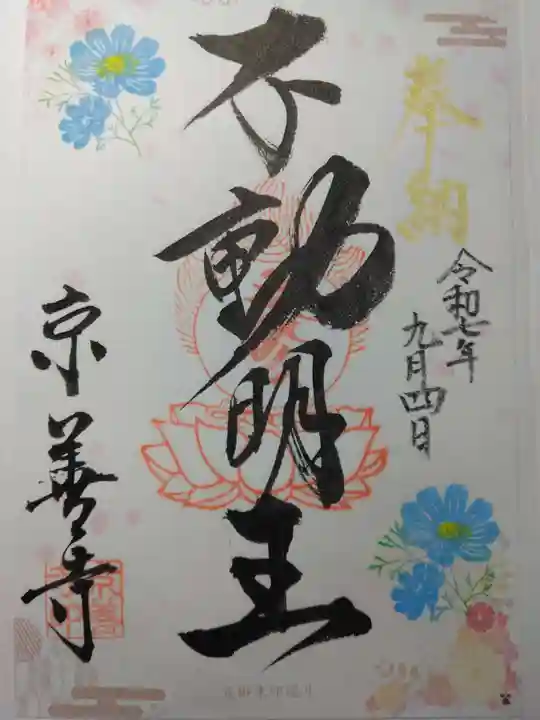 奉納
令和七年
九月四日
不動明王
京善寺